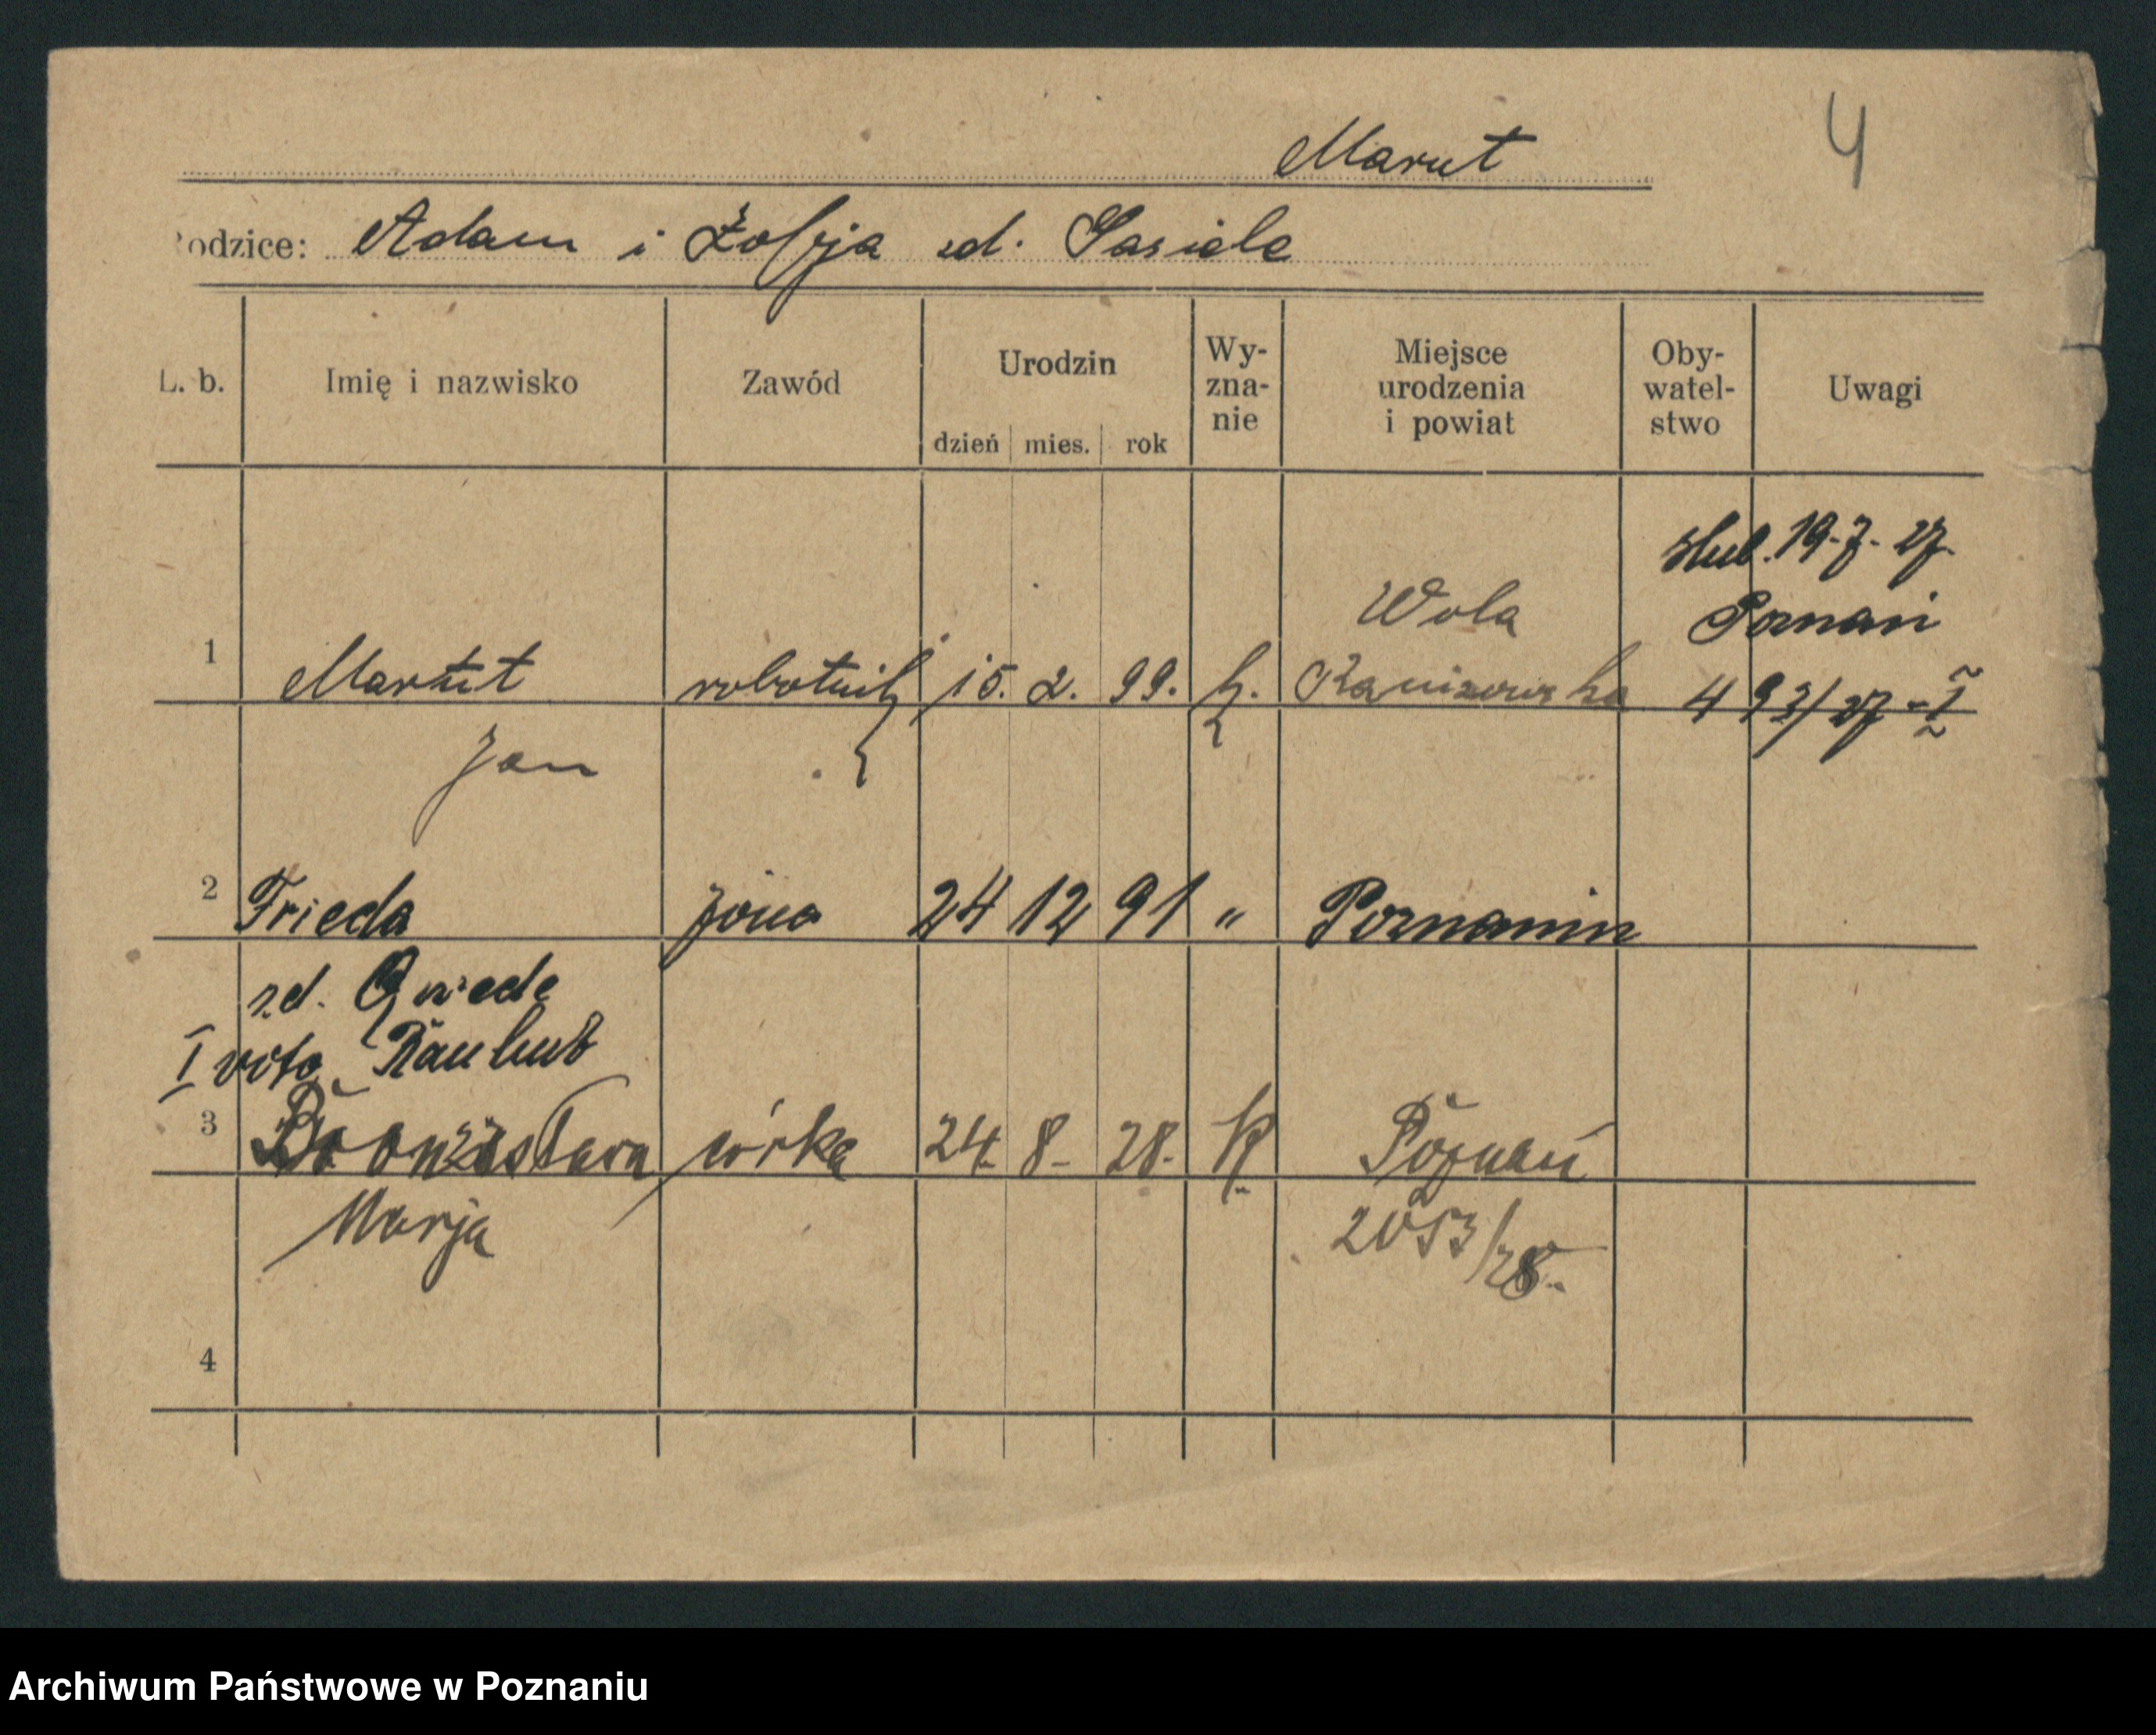 Marut
4
odzice: Adam i Zofja zd. Sasiela
L. b.
Imię i nazwisko
Zawód
Urodzin
dzień mies. rok
Wy-
zna-
nie
Miejsce
urodzenia
i powiat
Oby-
watel-
stwo
Uwagi
ślub. 19.7.27.
Poznań
493/27-I
Wola
1 Marut robotnik 15. 2. 99. k. Raniżowska
Jan
2 Frieda żona 24 12 91 " Poznaniu
zd.
I voto
3 Bronisława córka 24. 8. 28. k. Poznań
Marja 2053/28.
4
Archiwum Państwowe w Poznaniu